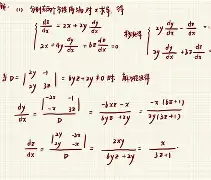 解: (1) 分别在两个方程两边对x求导, 得
{ dz/dx = 2x + 2y dy/dx
2x + 4y dy/dx + 6z dz/dx = 0
{ 2y dy/dx - dz/dx =
2y dy/dx + 3z dz/dx
D = | 2y -1 ; 2y 3z | = 6yz + 2y ≠ 0 时
dy/dx = | -2x -1 ; -x 3z | / D = (-6xz - x) / (6yz + 2y) = -x(6z+1) / 2y(3z+1)
dz/dx = | 2y -2x ; 2y -x | / D = 2xy / (6yz + 2y) = x / (3z+1)